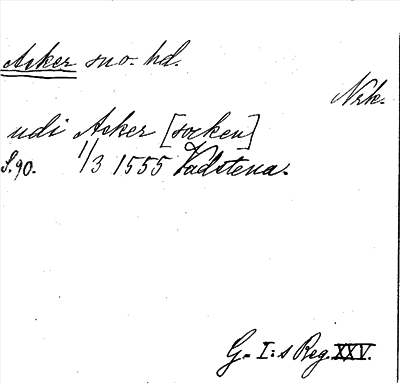 Asker sn o. hd.
Nrk.
udi Asker [socken]
S. 90. 1/3 1555 Vadstena.
G. I:s Reg. XXV.